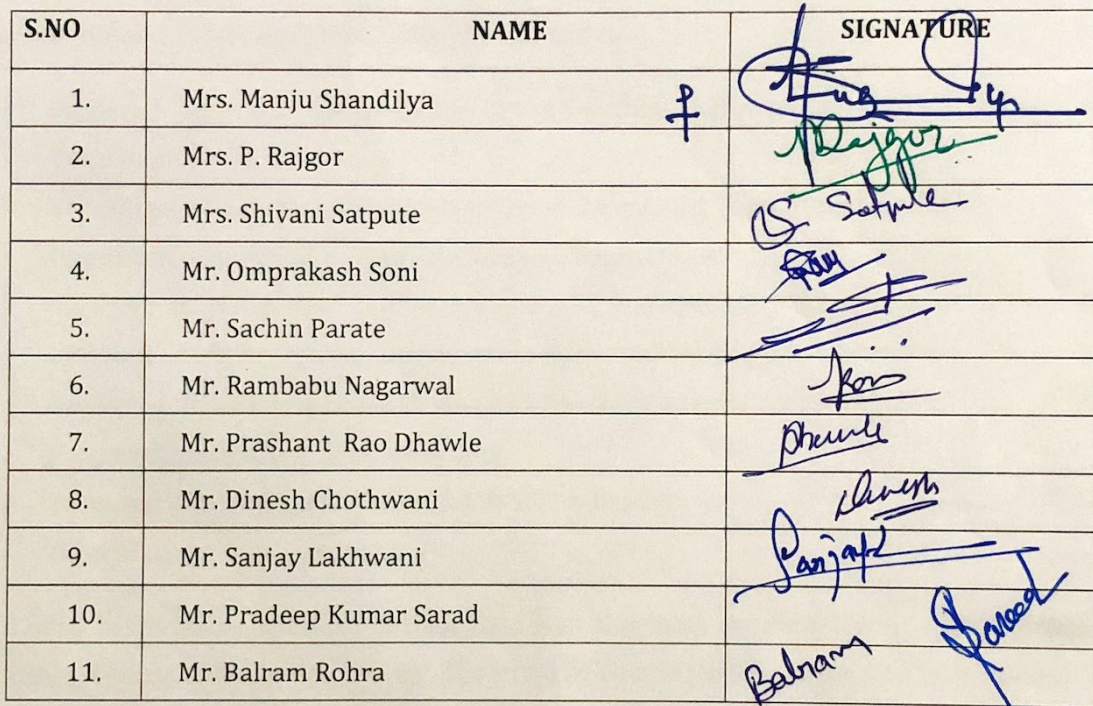 S.NO NAME SIGNATURE
1. Mrs. Manju Shandilya
2. Mrs. P. Rajgor Rajgor
3. Mrs. Shivani Satpute S. Satpute
4. Mr. Omprakash Soni
5. Mr. Sachin Parate
6. Mr. Rambabu Nagarwal
7. Mr. Prashant Rao Dhawle Dhawle
8. Mr. Dinesh Chothwani Dinesh
9. Mr. Sanjay Lakhwani Sanjay
10. Mr. Pradeep Kumar Sarad
11. Mr. Balram Rohra Balram